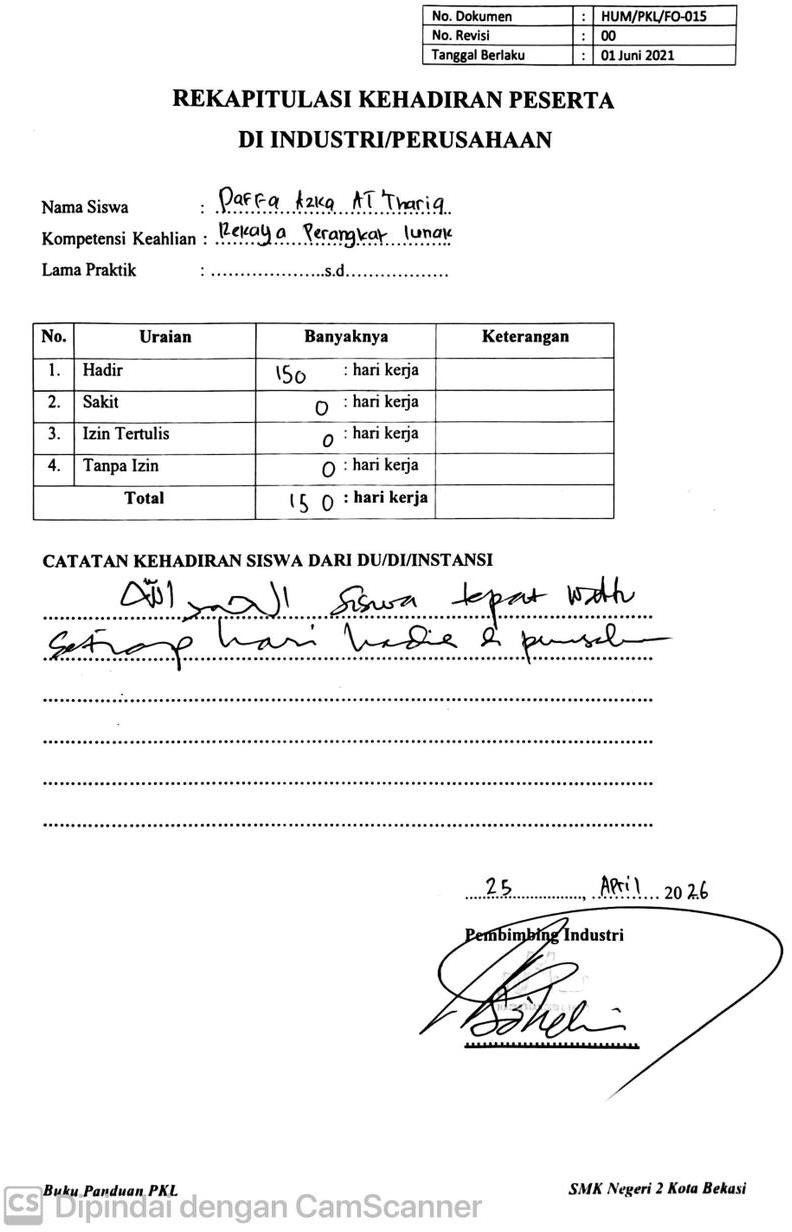 No. Dokumen : HUM/PKL/FO-015
No. Revisi : 00
Tanggal Berlaku : 01 Juni 2021
REKAPITULASI KEHADIRAN PESERTA
DI INDUSTRI/PERUSAHAAN
Nama Siswa : Daffa Azka AT Thariq
Kompetensi Keahlian : Rekaya Perangkat lunak
Lama Praktik : ....................s.d..................
No. Uraian Banyaknya Keterangan
1. Hadir 150 : hari kerja
2. Sakit 0 : hari kerja
3. Izin Tertulis 0 : hari kerja
4. Tanpa Izin 0 : hari kerja
Total 150 : hari kerja
CATATAN KEHADIRAN SISWA DARI DU/DI/INSTANSI
الحمد لله siswa tepat waktu
Setiap hari hadir di perusahaan
25, April 2026
Pembimbing Industri
Buku Panduan PKL
SMK Negeri 2 Kota Bekasi
CS Dipindai dengan CamScanner